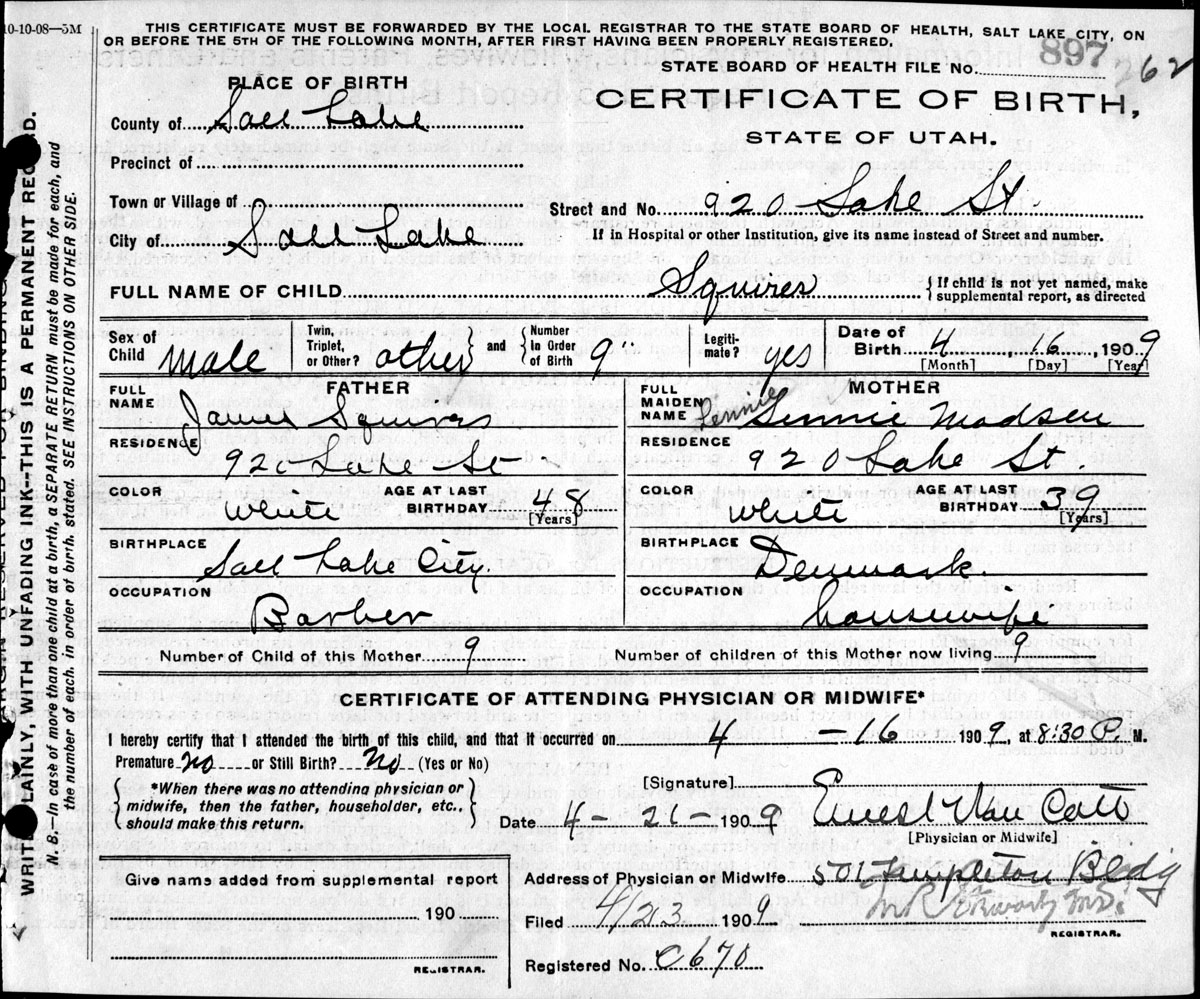 10-10-08—5M
THIS CERTIFICATE MUST BE FORWARDED BY THE LOCAL REGISTRAR TO THE STATE BOARD OF HEALTH, SALT LAKE CITY, ON
OR BEFORE THE 5TH OF THE FOLLOWING MONTH, AFTER FIRST HAVING BEEN PROPERLY REGISTERED.
STATE BOARD OF HEALTH FILE No. 897 262
PLACE OF BIRTH
CERTIFICATE OF BIRTH,
STATE OF UTAH.
County of Salt Lake
Precinct of
Town or Village of
Street and No. 920 Lake St.
City of Salt Lake
If in Hospital or other Institution, give its name instead of Street and number.
FULL NAME OF CHILD Squires { If child is not yet named, make
supplemental report, as directed
Sex of Child Male
Twin, Triplet, or Other? other } and { Number in Order of Birth 9"
Legitimate? yes
Date of Birth 4, 16, 1909
[Month] [Day] [Year]
FATHER
FULL NAME James Squires
RESIDENCE 920 Lake St
COLOR White AGE AT LAST BIRTHDAY 48
[Years]
BIRTHPLACE Salt Lake City.
OCCUPATION Barber
MOTHER
FULL MAIDEN NAME Lennie Madsen
RESIDENCE 920 Lake St.
COLOR White AGE AT LAST BIRTHDAY 39
[Years]
BIRTHPLACE Denmark.
OCCUPATION housewife
Number of Child of this Mother 9 Number of children of this Mother now living 9
CERTIFICATE OF ATTENDING PHYSICIAN OR MIDWIFE*
I hereby certify that I attended the birth of this child, and that it occurred on 4 -16 1909, at 8:30 P. M.
Premature no or Still Birth? No (Yes or No)
{ *When there was no attending physician or
midwife, then the father, householder, etc.,
should make this return. }
[Signature]
Date 4- 21- 1909 Ernest Van Cott
[Physician or Midwife]
Give name added from supplemental report
190
REGISTRAR.
Address of Physician or Midwife 501 Templeton Bldg
Filed 4/23 1909
REGISTRAR.
Registered No. C670
WRITE PLAINLY, WITH UNFADING INK—THIS IS A PERMANENT RECORD.
N. B.—In case of more than one child at a birth, a SEPARATE RETURN must be made for each, and
the number of each, in order of birth, stated. SEE INSTRUCTIONS ON OTHER SIDE.